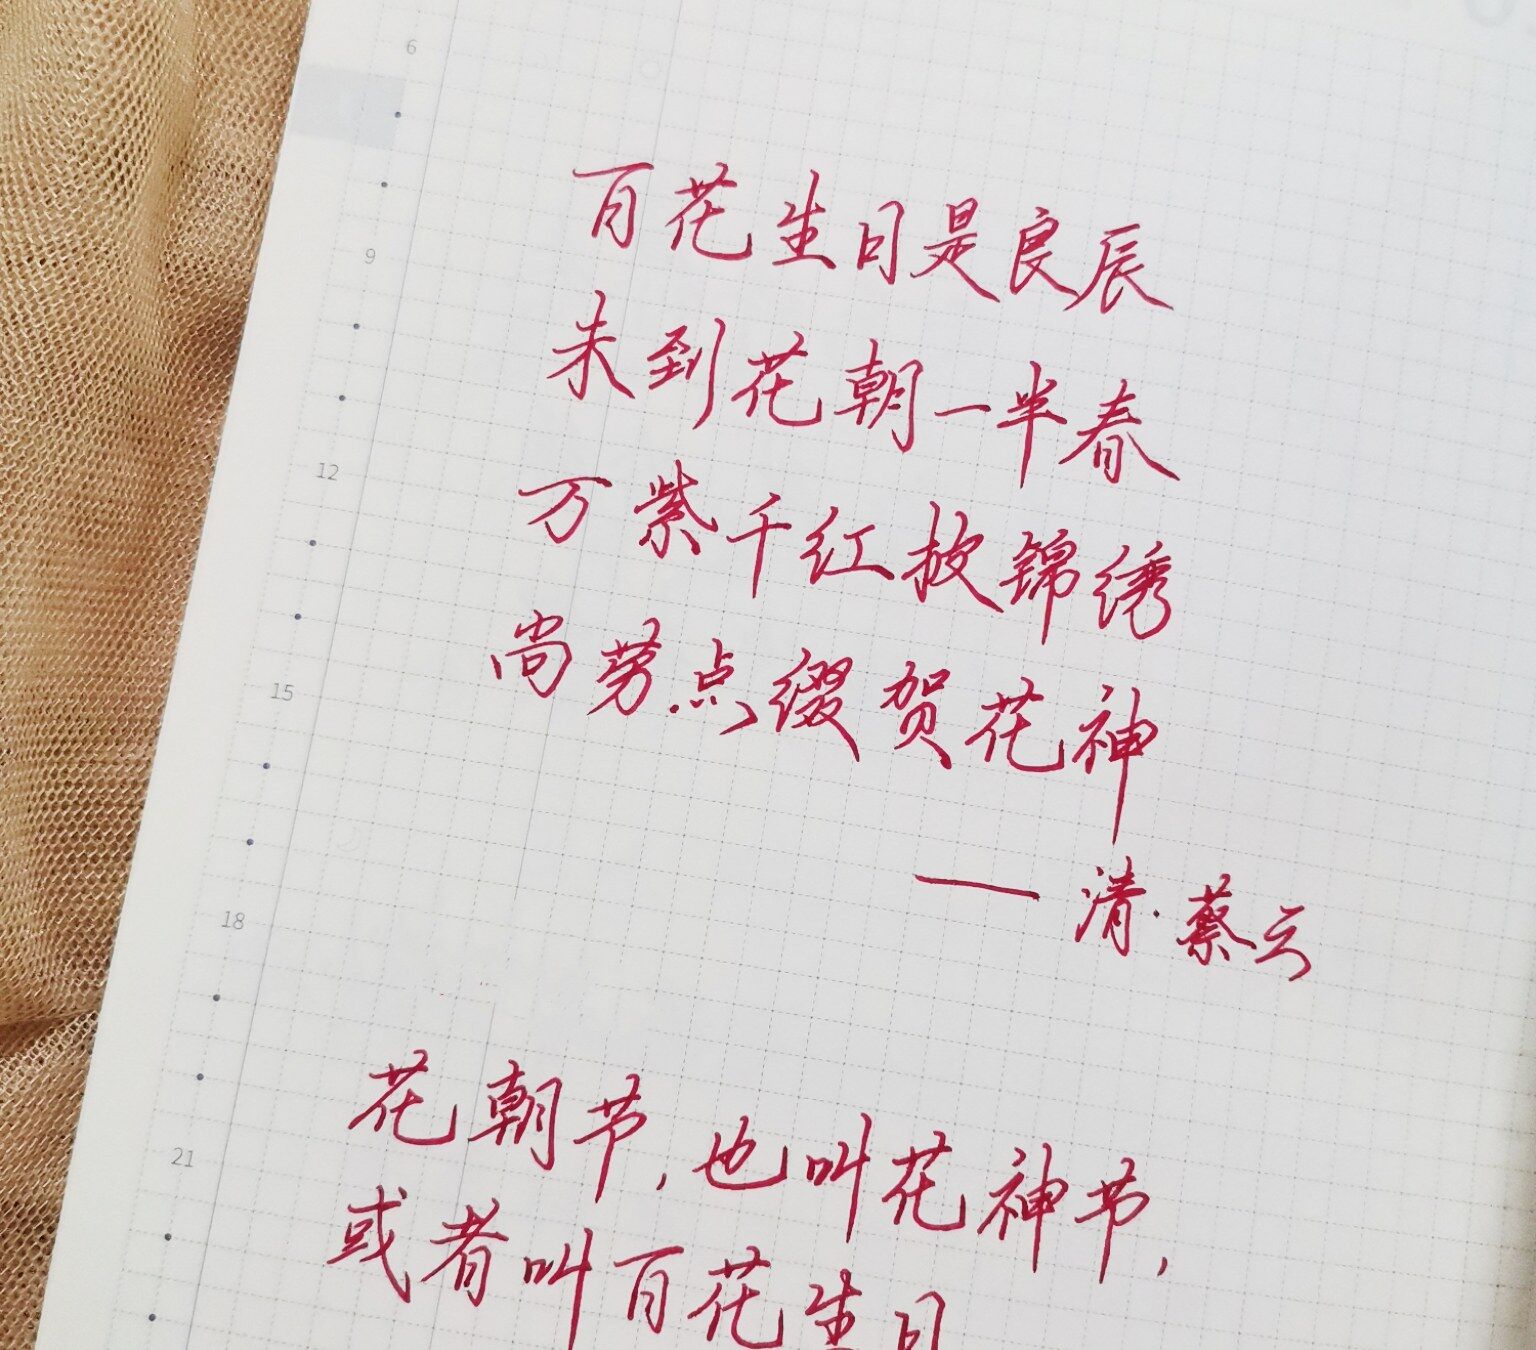 6
9
12
15
18
21
百花生日是良辰
未到花朝一半春
万紫千红披锦绣
尚劳点缀贺花神
——清·蔡云
花朝节，也叫花神节，
或者叫百花生日